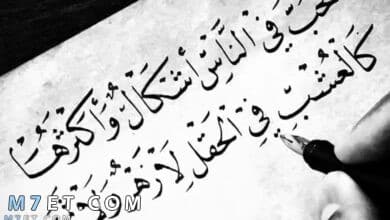 حُبُّ فِي النَّاسِ أَشْكَالٌ وَأَكْثَرُهَا
كَالْعُشْبِ فِي الْحَقْلِ لَا زَهْرٌ
M7ET.COM
M7ET.COM